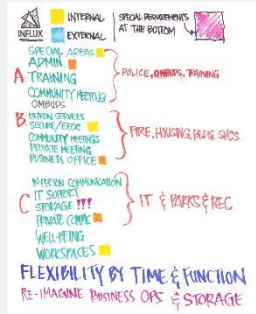 INFLUX
INTERNAL
EXTERNAL
SPECIAL REQUIREMENTS
AT THE BOTTOM
SPECIAL AREAS
A ADMIN
TRAINING
COMMUNITY MEETING
OMBUDS
POLICE, OMBUDS, TRAINING
B. PATRON SERVICES
SECURE/EEOC
COMMUNITY MEETINGS
PRIVATE MEETING
BUSINESS OFFICE
FIRE, HOUSING, BLDG SVCS
C IN-PERSON COMMUNICATION
IT SUPPORT
STORAGE !!!
PRIVATE COMMS
WELL-BEING
WORKSPACES
IT & PARKS & REC
FLEXIBILITY BY TIME & FUNCTION
RE-IMAGINE BUSINESS OPS & STORAGE